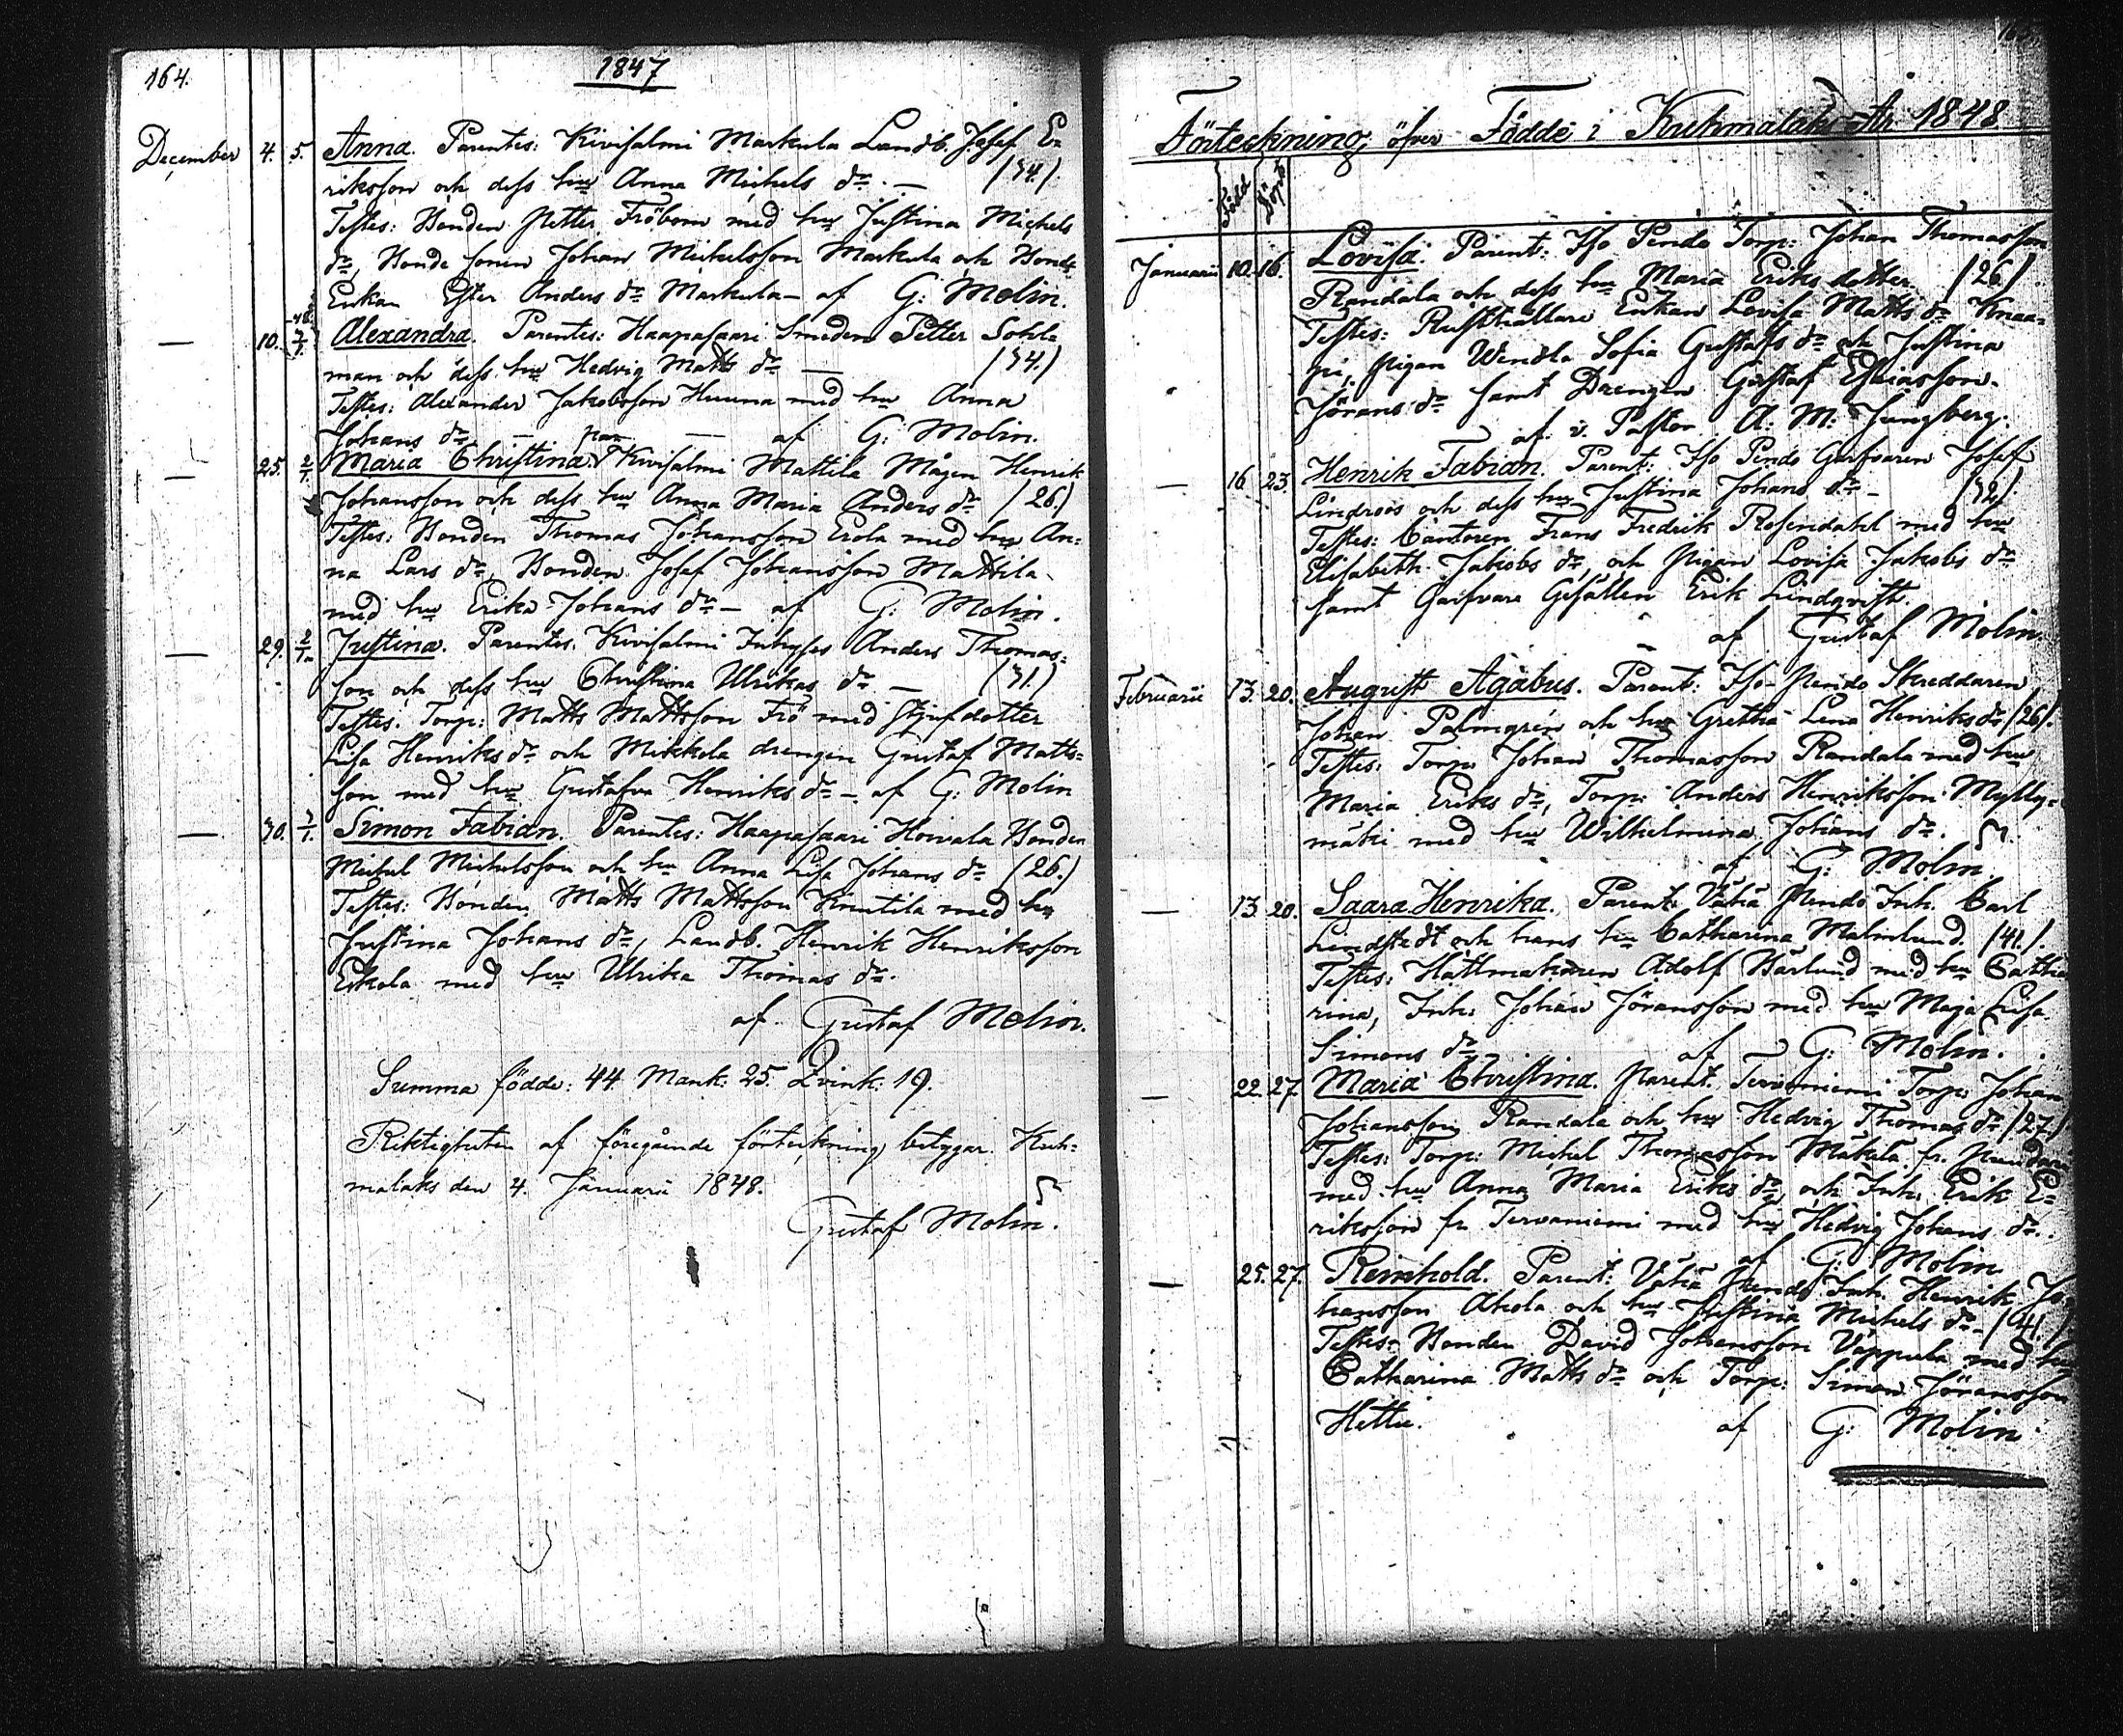 164.
1847
December 4. 5. Anna. Parentes: Kivisalmi Markula Landb. Josef E=
riksson och dess hu Anna Michels dr. — (34.)
Testes: Bonden Petter Fröbom med hu Justina Michels
dr, Bonde sonen Johan Michelsson Markula och Bonde
Enkan Ester Anders dr Markula — af G: Molin.
— 10. 48 2/1. Alexandra. Parentes: Haapasaari Smeden Petter Sohl=
man och dess hu Hedvig Matts dr — (34.)
Testes: Alexander Jakobsson Huuna med hu Anna
Johans dr — — af G: Molin.
— 25. 2/1. Maria Christina. par. Kivisalmi Mattila Mågen Henrik
Johansson och dess hu Anna Maria Anders dr (26.)
Testes: Bonden Thomas Johansson Erola med hu An=
na Lars dr, Bonden Josef Johansson Mattila
med hu Erika Johans dr — af G: Molin.
— 29. 2/1. Justina. Parentes. Kivisalmi Inhyses Anders Thomas=
son och dess hu Christina Ulrikas dr — (31.)
Testes: Torp: Matts Mattsson Frö med styfdotter
Lisa Henriks dr och Mikkola drengen Gustaf Matts=
son med hu Gustafva Henriks dr — af G: Molin
— 30. 3/1. Simon Fabian. Parentes: Haapasaari Horvala Bonden
Michel Michelsson och hu Anna Lisa Johans dr (26.)
Testes: Bonden Matts Mattsson Knutila med hu
Justina Johans dr, Landb. Henrik Henriksson
Eskola med hu Ulrika Thomas dr.
af Gustaf Molin.
Summa födde: 44 Mank: 25. Qvink: 19.
Riktigheten af föregående förteckning betygar. Kuh=
malaks den 4. Januarii 1848.
Gustaf Molin.
165.
Förteckning öfver Födde i Kuhmalaks År 1848
Född Döpt
Januarii 10. 16. Lovisa. Parent: Iso Pendo Torp: Johan Thomasson
Randala och dess hu Maria Eriks dotter (26.)
Testes: Rusthållare Enkan Lovisa Matts dr Knaa=
pi, Pigan Wendla Sofia Gustafs dr och Justina
Jörans dr samt Drengen Gustaf Esaiasson.
af v. Pastor A. M: Ljungberg.
— 16. 23. Henrik Fabian. Parent: Iso Pendo Garfvaren Josef
Lindroos och dess hu Justina Johans dr — (32.)
Testes: Cantoren Frans Fredrik Rosendahl med hu
Elisabeth Jakobs dr, och Pigan Lovisa Jakobs dr
samt Garfvare Gesällen Erik Lindqvist.
af Gustaf Molin.
Februarii 13. 20. August Agabus. Parent: Iso Pendo Skreddaren
Johan Palmgrén och hu Gretha Lena Henriks dr (26).
Testes: Torp: Johan Thomasson Randala med hu
Maria Eriks dr, Torp: Anders Henriksson Mylly=
mäki med hu Wilhelmina Johans dr.
af G: Molin
— 13. 20. Saara Henrika. Parent: Vähä Pendo Inh. Carl
Lindstedt och hans hu Catharina Malmlund. (41.)
Testes: Hattmakaren Adolf Bärlund med hu Catha
rina, Inh: Johan Jöransson med hu Maja Lisa
Simons dr af G: Molin.
— 22. 27. Maria Christina. Parent. Tervaniemi Torp: Johan
Johansson Randala och hu Hedvig Thomas dr (27.)
Testes: Torp: Michel Thomasson Mäkelä fr.
med hu Anna Maria Eriks dr, och Inh: Erik E=
riksson fr Tervaniemi med hu Hedvig Johans dr.
af G: Molin
— 25. 27. Reinhold. Parent: Vähä Pendo Inh. Henrik Jo
hansson Ahola och hu Justina Michels dr — (41.)
Testes: Bonden David Johansson Väppula med hu
Catharina Matts dr och Torp: Simon Jöransson
Hettu. af G: Molin